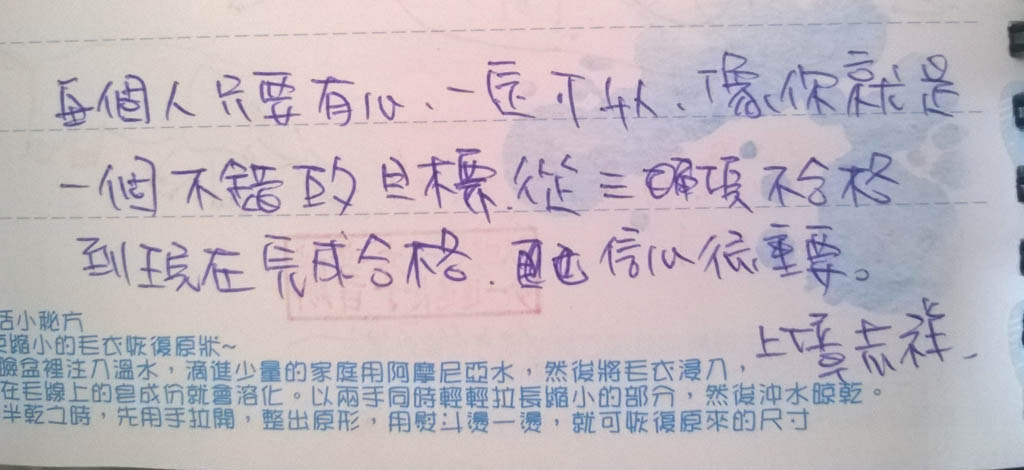 每個人只要有心、一定可以、像你就是
一個不錯的目標.從三項不合格
到現在完成合格.信心很重要。
上
志祥
活小秘方
縮小的毛衣恢復原狀~
臉盆裡注入溫水，滴進少量的家庭用阿摩尼亞水，然後將毛衣浸入，
在毛線上的皂成份就會溶化。以兩手同時輕輕拉長縮小的部分，然後沖水晾乾。
半乾之時，先用手拉開，整出原形，用熨斗燙一燙，就可恢復原來的尺寸